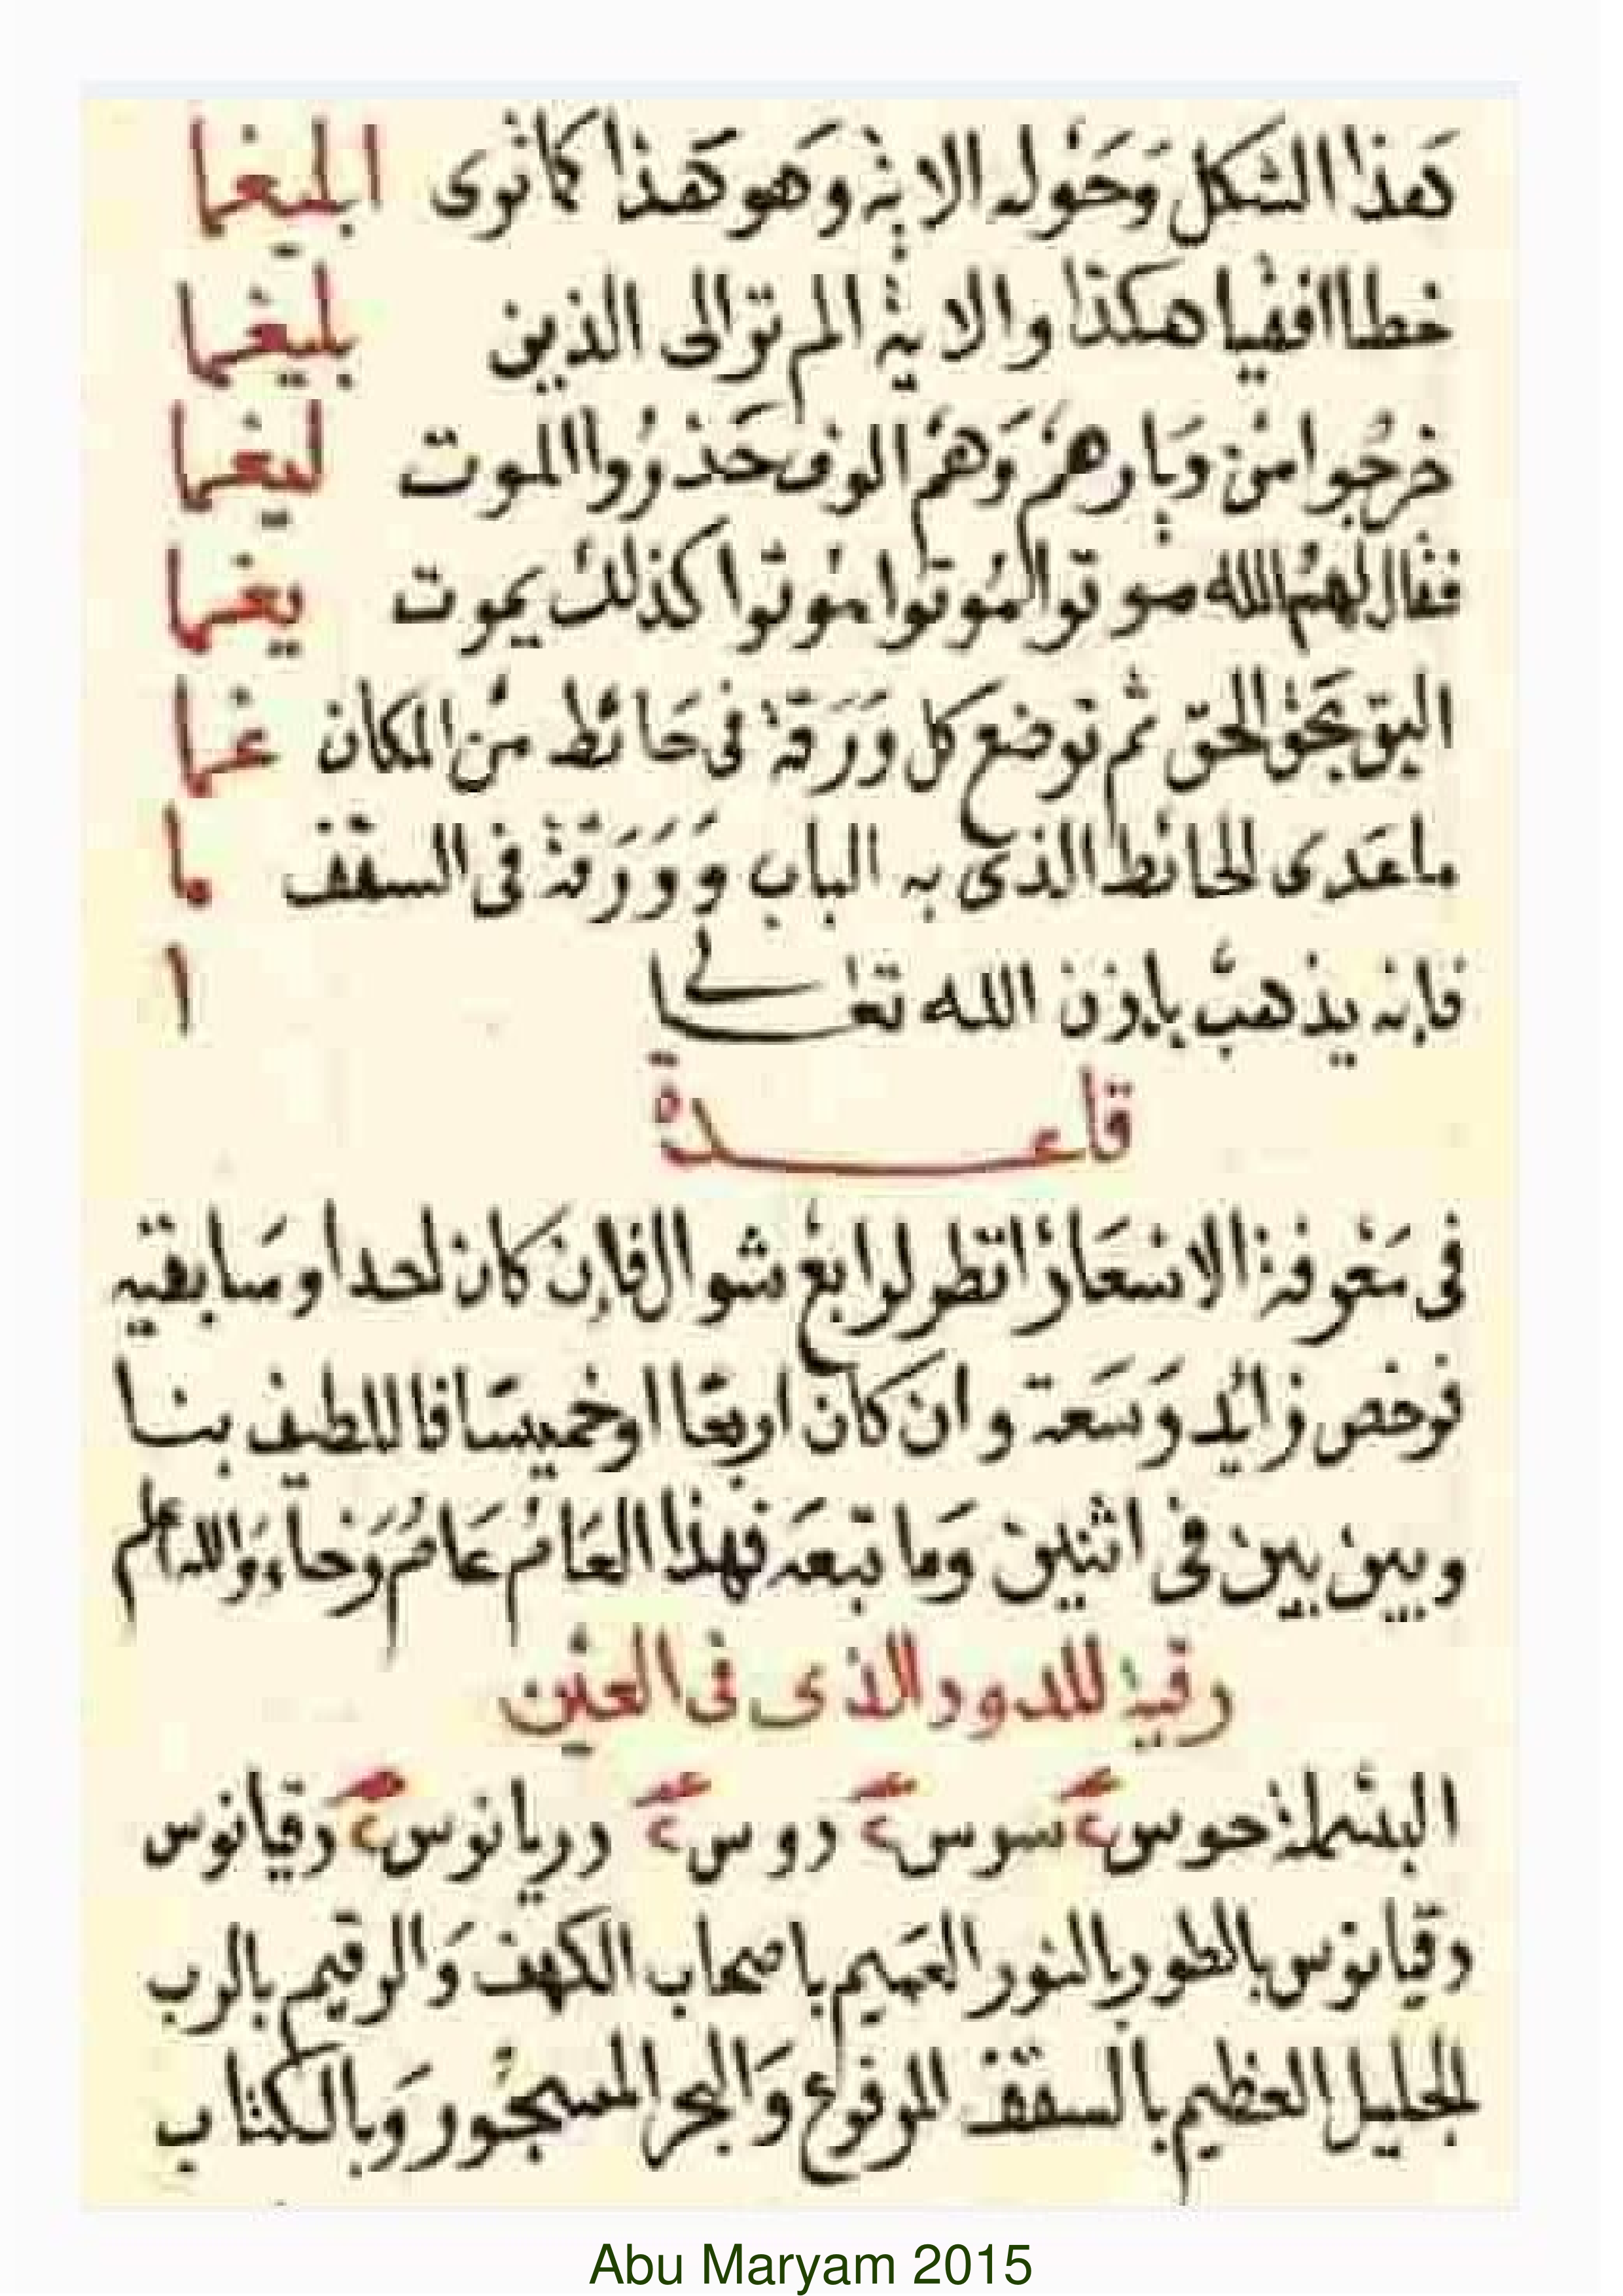 هذا الشكل وحوله الاية وهو هذا كما ترى ابليغما
خطا افقيا هكذا والاية الم تر الى الذين بليغما
خرجوا من ديارهم وهم الوف حذر والموت ليغما
فقال لهم الله موتوا موتوا موتوا كذلك يموت يغما
البق بحق الحق ثم توضع كل ورقة فى حائط من المكان غما
ماعدى الحائط الذى به الباب و ورقة فى السقف ما
فإنه يذهب بإذن الله تعالى ا
قاعدة
فى معرفة الاسعار انظر لرابع شوال فإن كان لحدا وسابقيه
فرخص زائد وسعة وان كان اربعا او خميسا فاللطيف بنا
وبين بين فى اثنين وما تبعه فهذا العام عام رخاء والله اعلم
رقية للدود الذى فى العين
البسملة حوس سوس دوس دريانوس دقيانوس
دقيانوس بالطور بالنور العميم باصحاب الكهف والرقيم بالرب
الجليل العظيم بالسقف المرفوع والبحر المسجور وبالكتاب
Abu Maryam 2015